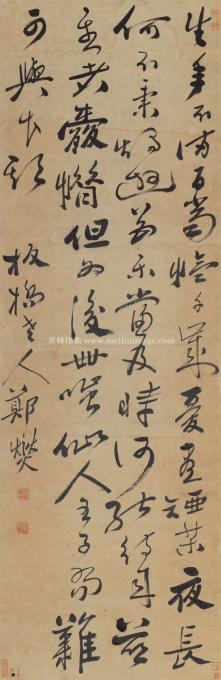 生年不滿百常懷千歲憂晝短苦夜長
何不秉燭遊為樂當及時何能待來茲
愚者愛惜但為後世嗤仙人王子喬難
可與等期 板橋老人鄭燮
www.meilinimage.com